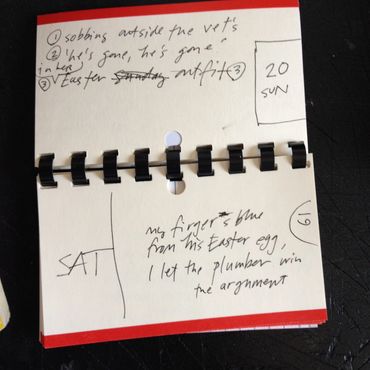 ① sobbing outside the vet's
② "he's gone, he's gone"
in her
③ Easter Sunday outfit ③
20
SUN
SAT
19
my finger's blue
from his Easter egg,
I let the plumber win
the argument